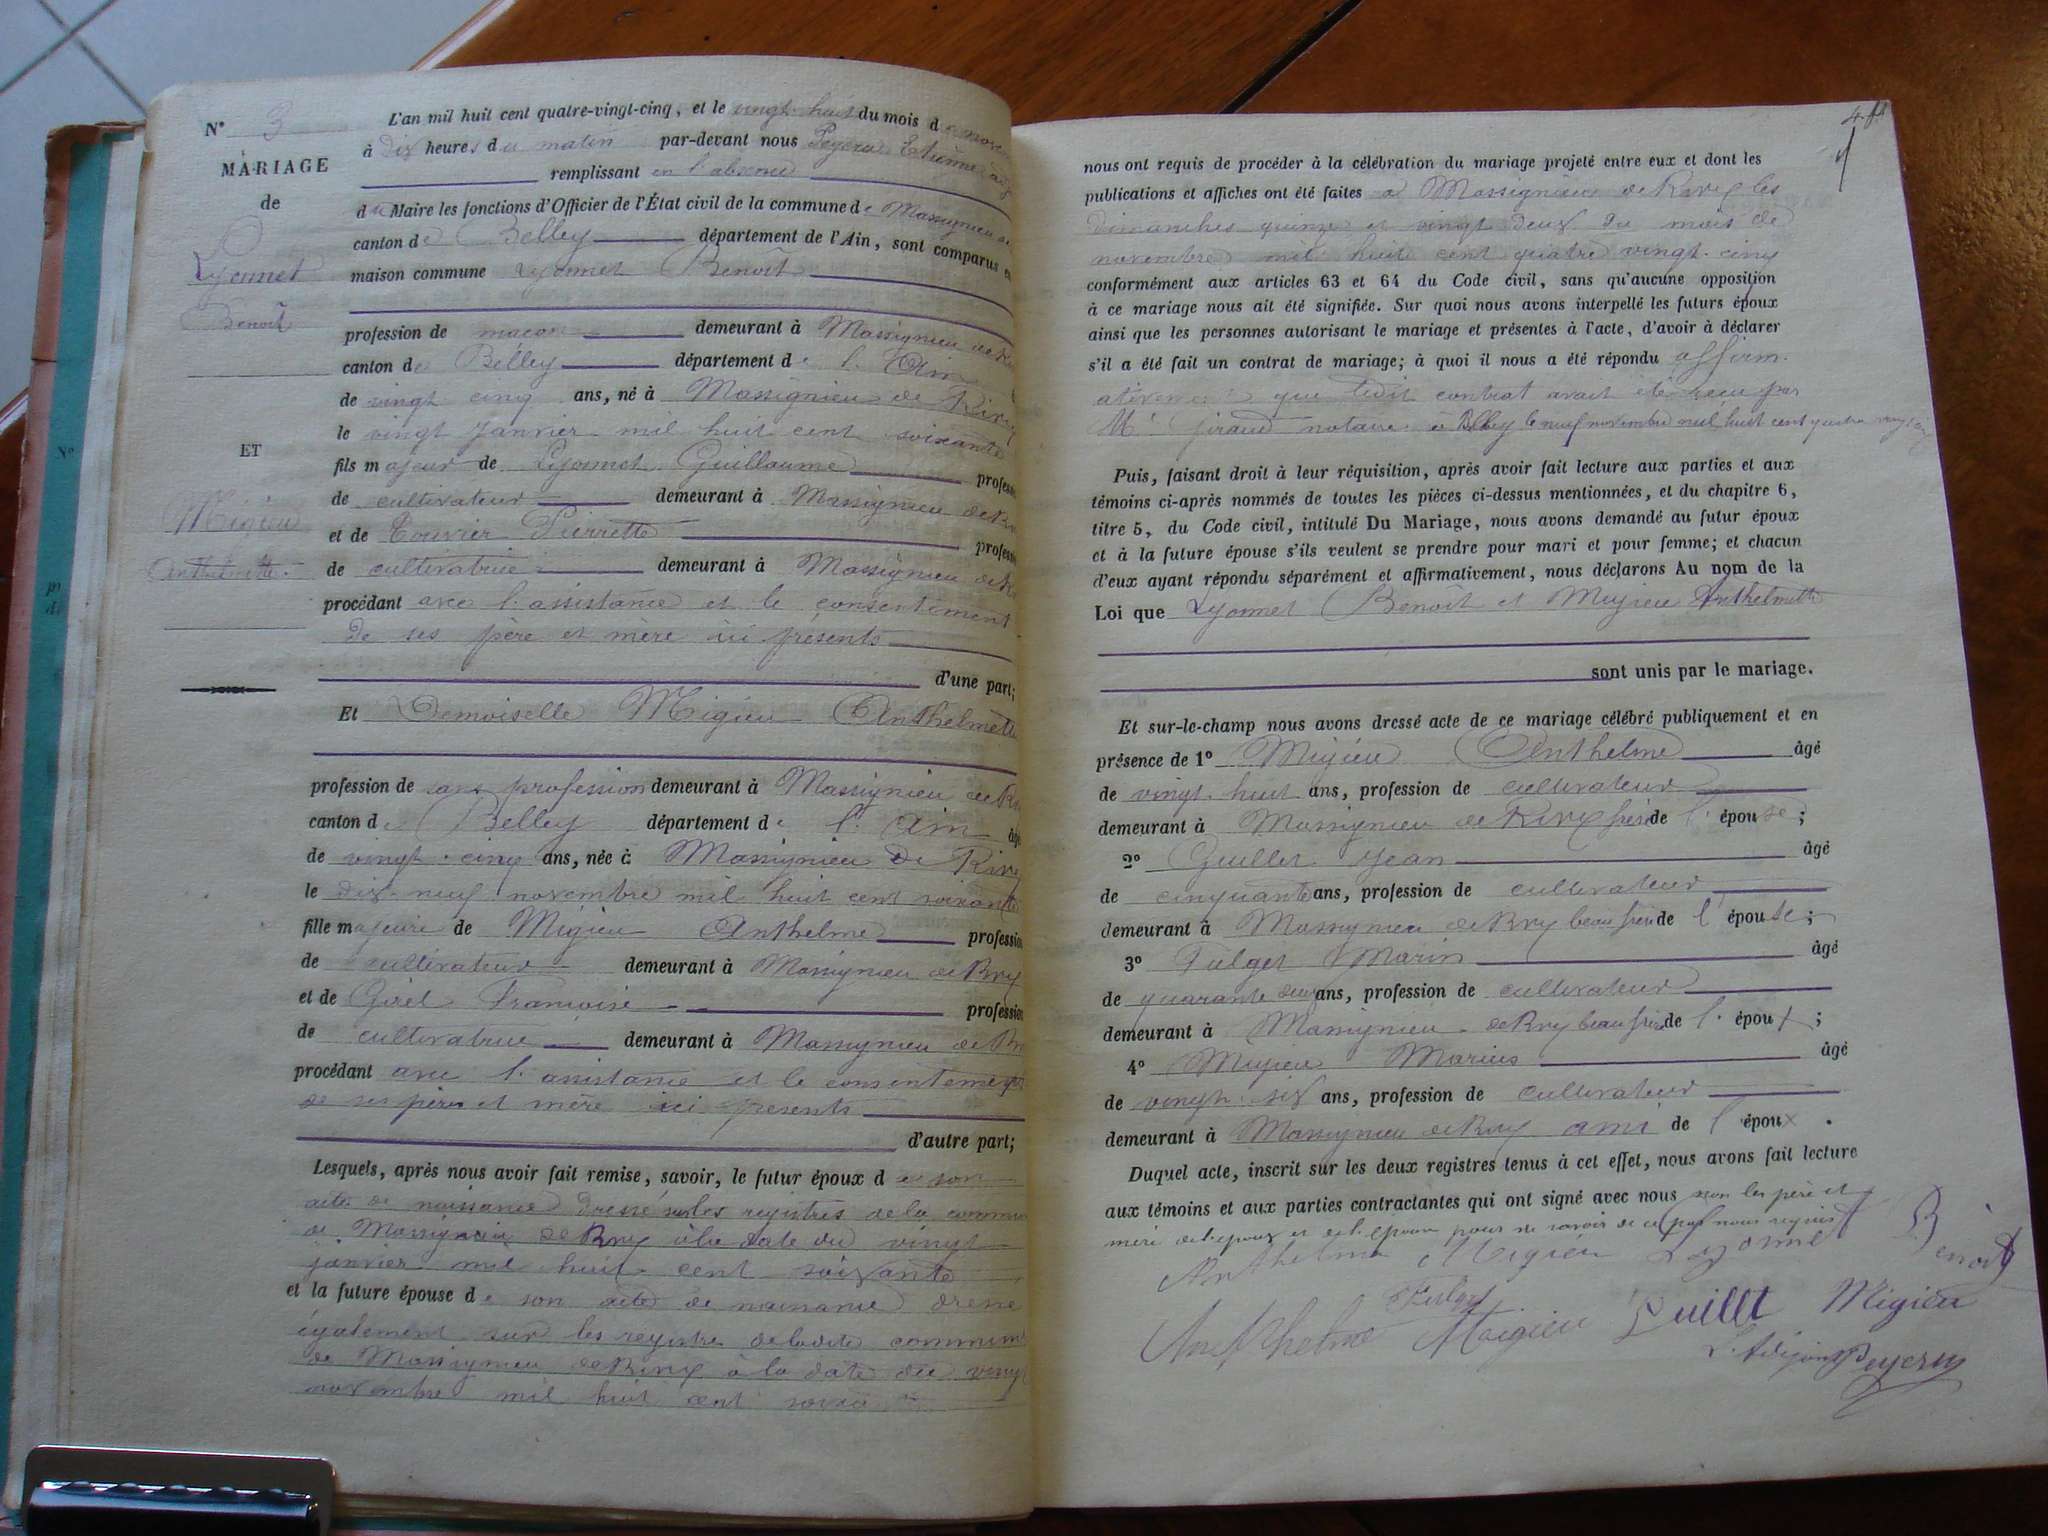 N° 3
MARIAGE
de
Lyonnet
Benoît
ET
Migieu
Anthelmette
L'an mil huit cent quatre-vingt-cinq, et le vingt huit du mois de novem
à dix heures du matin par-devant nous Peyeru Etienne adj
remplissant en l'absence
du Maire les fonctions d'Officier de l'État civil de la commune de Massignieu de
canton de Belley département de l'Ain, sont comparus en
maison commune Lyonnet Benoit
profession de maçon demeurant à Massignieu de Ri
canton de Belley département de l'Ain
de vingt cinq ans, né à Massignieu de Rives
le vingt janvier mil huit cent soixante
fils majeur de Lyonnet Guillaume profession
de cultivateur demeurant à Massignieu de Ri
et de Touvier Pierrette profession
de cultivatrice demeurant à Massignieu de Ri
procédant avec l'assistance et le consentement
de ses père et mère ici présents
d'une part;
Et Demoiselle Migieu Anthelmette
profession de sans profession demeurant à Massignieu de Riv
canton de Belley département de l'Ain âgé
de vingt-cinq ans, née à Massignieu de Rives
le dix-neuf novembre mil huit cent soixante
fille majeure de Migieu Anthelme profession
de cultivateur demeurant à Massignieu de Rives
et de Girel Francoise profession
de cultivatrice demeurant à Massignieu de Ri
procédant avec l'assistance et le consentement
de ses père et mère ici présents
d'autre part;
Lesquels, après nous avoir fait remise, savoir, le futur époux de son
acte de naissance dressé sur les registres de la commune
de Massignieu de Rives à la date du vingt
janvier mil huit cent soixante
et la future épouse de son acte de naissance dressé
également sur les registres de ladite commune
de Massignieu de Rives à la date du vingt
novembre mil huit cent soixante
nous ont requis de procéder à la célébration du mariage projeté entre eux et dont les
publications et affiches ont été faites à Massignieu de Rives les
dimanches quinze et vingt deux du mois de
novembre mil huit cent quatre vingt-cinq
conformément aux articles 63 et 64 du Code civil, sans qu'aucune opposition
à ce mariage nous ait été signifiée. Sur quoi nous avons interpellé les futurs époux
ainsi que les personnes autorisant le mariage et présentes à l'acte, d'avoir à déclarer
s'il a été fait un contrat de mariage; à quoi il nous a été répondu affirm-
ativement que ledit contrat avait été reçu par
Me Jiraud notaire à Belley le neuf novembre mil huit cent quatre vingt cinq
Puis, faisant droit à leur réquisition, après avoir fait lecture aux parties et aux
témoins ci-après nommés de toutes les pièces ci-dessus mentionnées, et du chapitre 6,
titre 5, du Code civil, intitulé Du Mariage, nous avons demandé au futur époux
et à la future épouse s'ils veulent se prendre pour mari et pour femme; et chacun
d'eux ayant répondu séparément et affirmativement, nous déclarons Au nom de la
Loi que Lyonnet Benoît et Migieu Anthelmette
sont unis par le mariage.
Et sur-le-champ nous avons dressé acte de ce mariage célébré publiquement et en
présence de 1° Migieu Anthelme âgé
de vingt-huit ans, profession de cultivateur
demeurant à Massignieu de Rives frère de l'épouse;
2° Guillet Jean âgé
de cinquante ans, profession de cultivateur
demeurant à Massignieu de Rives beau frère de l'épouse;
3° Fulget Marin âgé
de quarante deux ans, profession de cultivateur
demeurant à Massignieu de Rives beau frère de l'époux;
4° Migieu Marius âgé
de vingt-six ans, profession de cultivateur
demeurant à Massignieu de Rives ami de l'époux.
Duquel acte, inscrit sur les deux registres tenus à cet effet, nous avons fait lecture
aux témoins et aux parties contractantes qui ont signé avec nous non les père et
mère de l'époux et l'épouse pour ne savoir de ce fait nous requis
Anthelme Migieu Lyonnet Benoit
Fulget Guillet Migieu
Anthelme Migieu
L'Adjoint Peyeru